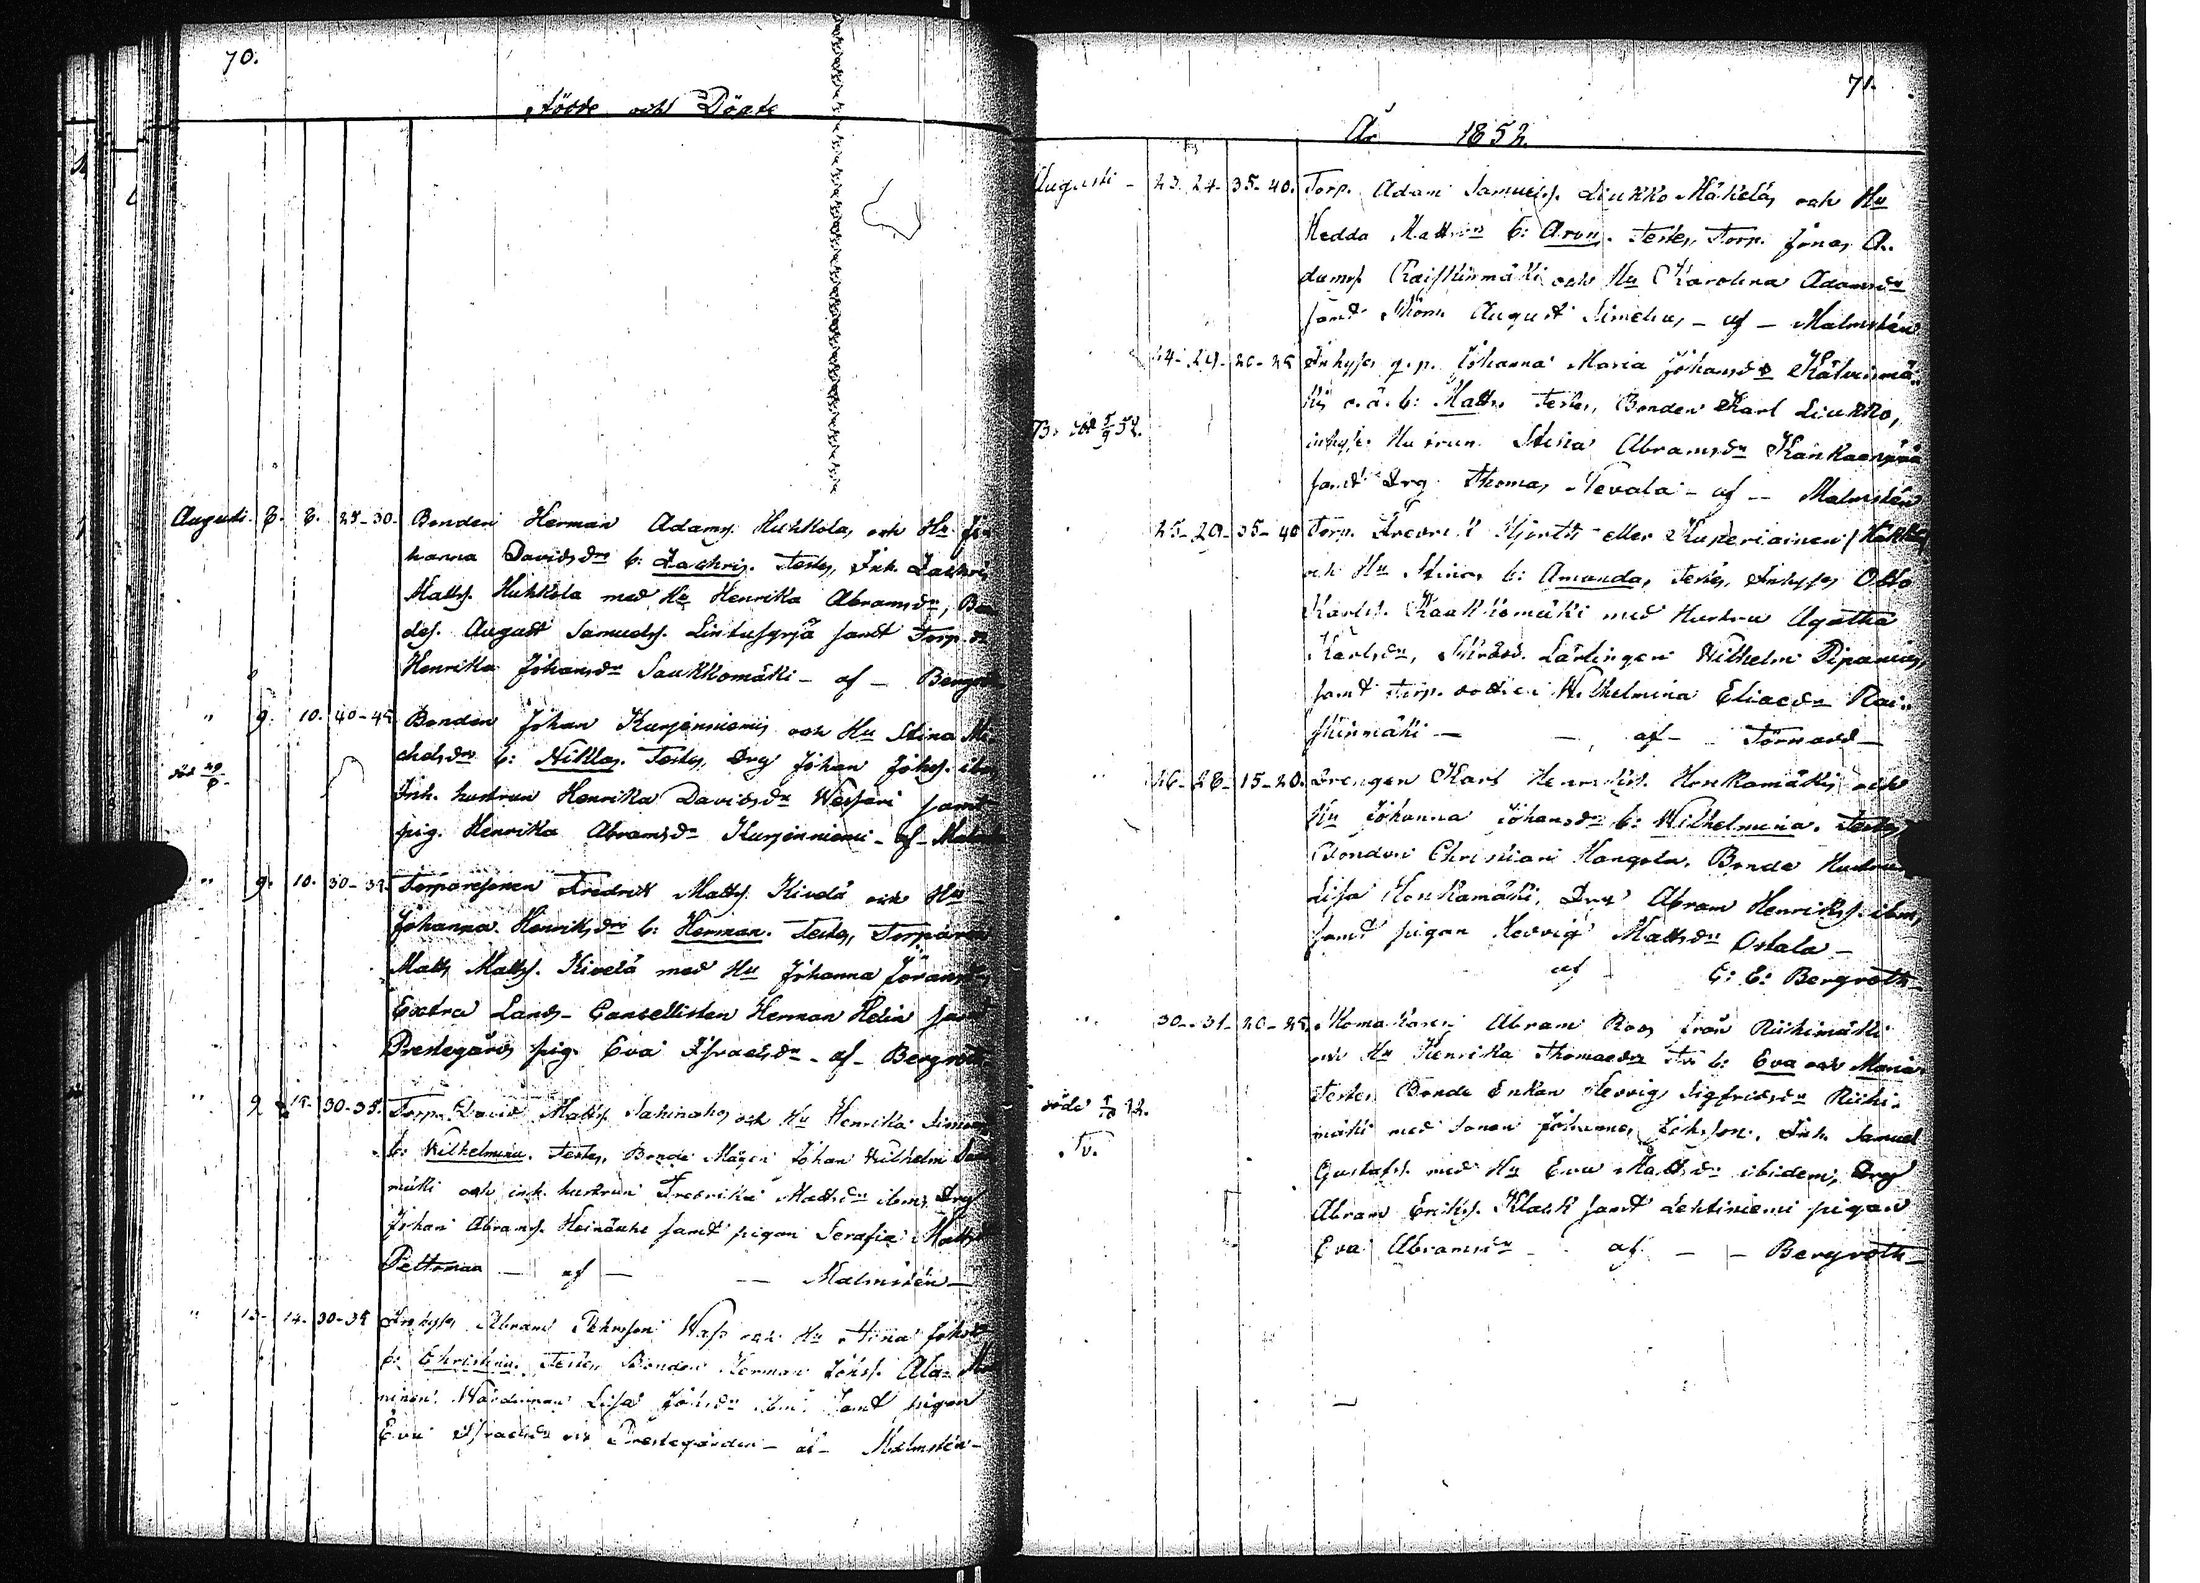 70.
Födde och Döpte
Augusti. 8. 8. 25-30. Bonden Herman Adamss. Huhkola, och Hu Jo
hanna Davidsdr b: Zachris. Testes, Inh. Zachris
Matts. Huhkola med Hu Henrika Abramsdr, Bon
des. August Samuels. Lintusyrjä samt Torp. dr
Henrika Johansdr Saukkomäki - af - Bergroth
" 9. 10. 40-45 Bonden Johan Kurjenniemi och Hu Stina Mi
chelsdr b: Niklas. Testes, Drg Johan Johss. ibm
död 29/8. Inh. hustrun Henrika Davidsdr Wessari samt
pig. Henrika Abramsdr Kurjenniemi - af - Malmstén
" 9. 10. 30-35. Torparesonen Fredrik Matts. Kivelä och Hu
Johanna Henriksdr b: Herman. Testes, Torparen
Matts Matts. Kivelä med Hu Johanna Jöransdr
Extra Lands-Cancellisten Herman Helin samt
Prestegårds pig. Eva Israelsdr - af - Bergroth
" 9 14. 30-35. Torp. David Matts. Sahinaho, och Hu Henrika Simonsdr
b: Wilhelmina. Testes, Bonde Mågen Johan Wilhelm
mäki och inh. hustrun Fredrika Mattsdr ibm, Drg
Johan Abrams. Heinäaho samt pigan Serafia Matts
Peltomaa - af - - Malmstén -
" 13- 14. 30-35 Inhyses Abram Pehrsson Wass och Hu Stina Johsdr
b: Christina. Testes Bonden Herman Johss. Ala-
ninen. Wärdinnan Lisa Johsdr ibm. samt pigan
Eva Israelsdr vid Prestegården - af - Malmstén -
71.
År 1852.
Augusti - 23. 24. 35-40. Torp. Adam Samuelss. Liukko Mäkelä, och Hu
Hedda Mattsdr b: Aron. Testes, Torp. Jonas A-
damss. Raiskinmäki och Hu Karolina Adamsdr
samt Skom. August Simelius - af - Malmstén
24- 29- 20-25 Inhyses q. p. Johanna Maria Johansdr Kätvinmä-
ki o. ä. b: Matts. Testes, Bonden Karl Liukko,
B. död 5/9 52. inhyse Hustrun Stina Abramsdr Kankaanpää
samt Drg. Thomas Nevala - af - Malmstén
25- 29- 35-40 Torp. Fredrik Hjerth eller Kuperiainen
och Hu Stina b: Amanda, Testes, Inhyses Otto
Karlss. Kaukkomäki med Hustru Agatha
Karlsdr, Skräd. Lärlingen Wilhelm Pipanius,
samt Torp. dottren Wilhelmina Eliaedr Rai-
skinmäki - - af - Törnudd -
" 26- 28- 15-20. Drengen Karl Henrikss. Honkamäki, och
Hu Johanna Johansdr b: Wilhelmina. Testes,
Bonden Christian Hangola. Bonde Hustrun
Lisa Honkamäki, Drg Abram Henrikss. ibm,
samt pigan Hedvig Mattsdr Ostala -
af G: E: Bergroth -
" 30- 31- 20-25. Skomakaren Abram Roos från Riihimäki
och Hu Henrika Thomaedr Tv b: Eva och Maria
döde 1/9 52. Testes Bonde Enkan Hedvig Sigfridsdr Riihi-
mäki med Sonen Johannes Johsson, Inh. Samuel
Tv. Gustafs. med Hu Eva Mattsdr ibidem, Drg
Abram Eriks. Klack samt Lehtiniemi pigan
Eva Abramsdr - af - - Bergroth -